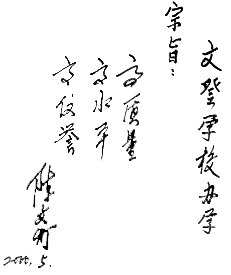 文登学校办学
宗旨：
高质量
高水平
高信誉
陈文灯
2000.5.